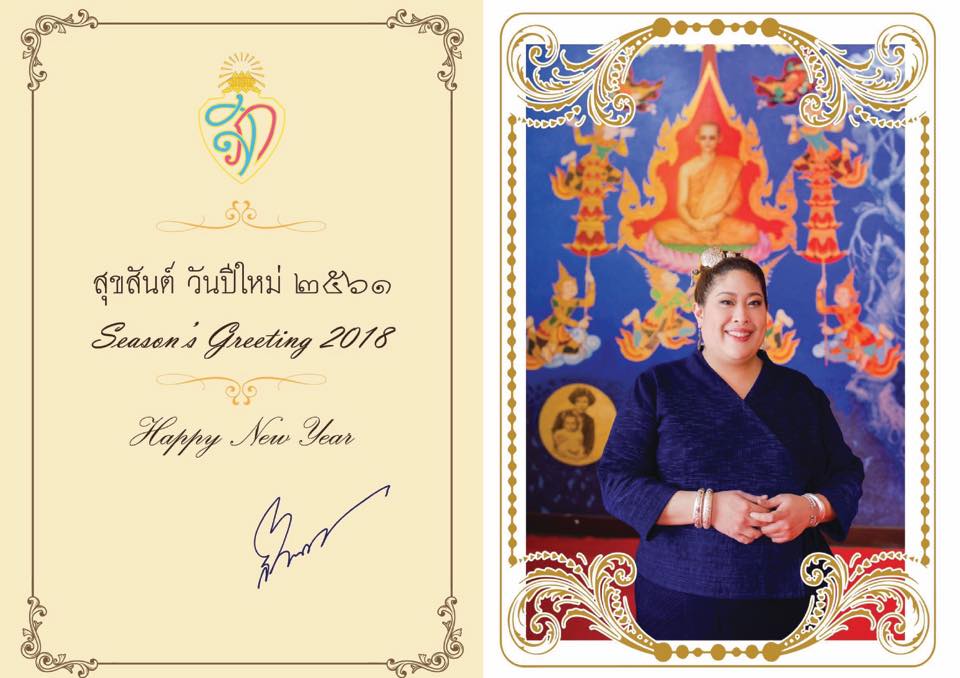 สุขสันต์ วันปีใหม่ ๒๕๖๑
Season's Greeting 2018
Happy New Year